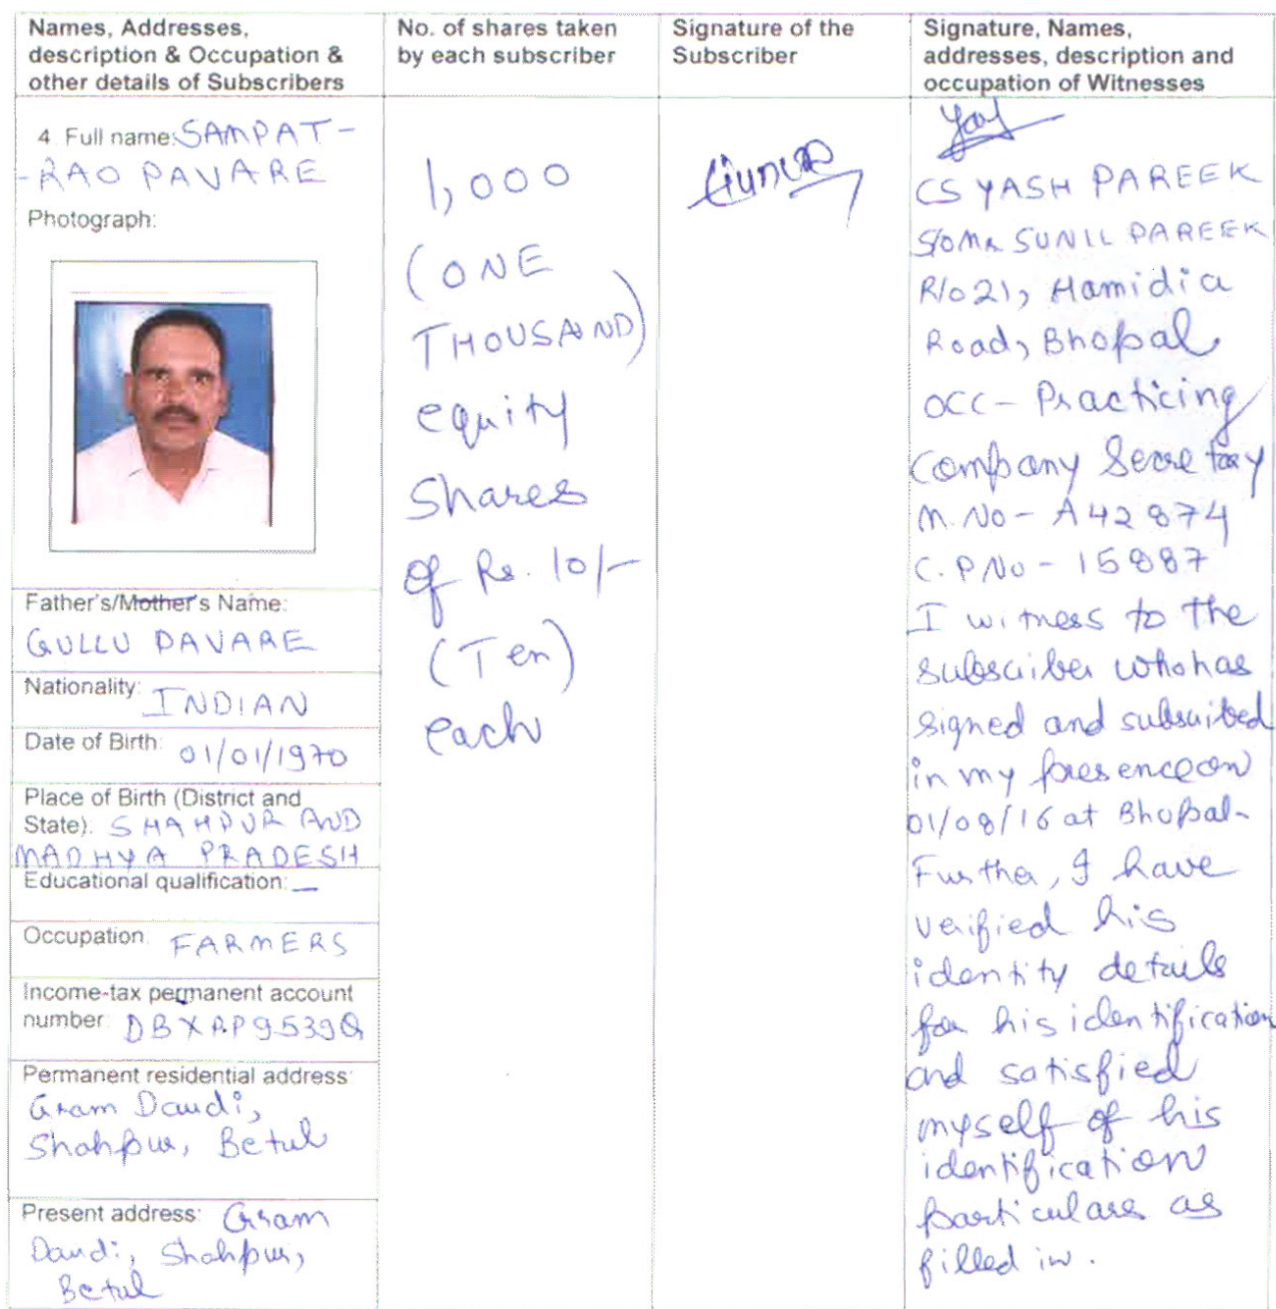 Names, Addresses,
description & Occupation &
other details of Subscribers
No. of shares taken
by each subscriber
Signature of the
Subscriber
Signature, Names,
addresses, description and
occupation of Witnesses
4 Full name: SAMPAT-
-RAO PAVARE
Photograph:
Father's/Mother's Name:
GULLU PAVARE
Nationality: INDIAN
Date of Birth: 01/01/1970
Place of Birth (District and
State): SHAHPUR AND
MADHYA PRADESH
Educational qualification: —
Occupation: FARMERS
Income-tax permanent account
number: DBXPP9539Q
Permanent residential address:
Gram Daudi,
Shahpur, Betul
Present address: Gram
Daudi, Shahpur,
Betul
1,000
(ONE
THOUSAND)
equity
Shares
of Rs. 10/-
(Ten)
each
CS YASH PAREEK
S/O MR SUNIL PAREEK
R/o 21, Hamidia
Road, Bhopal
OCC- Practicing
Company Secretary
M.No- A42874
C.P.No- 15887
I witness to the
subscriber who has
signed and subscribed
in my presence on
01/08/16 at Bhopal.
Further, I have
verified his
identity details
for his identification
and satisfied
myself of his
identification
particulars as
filled in.